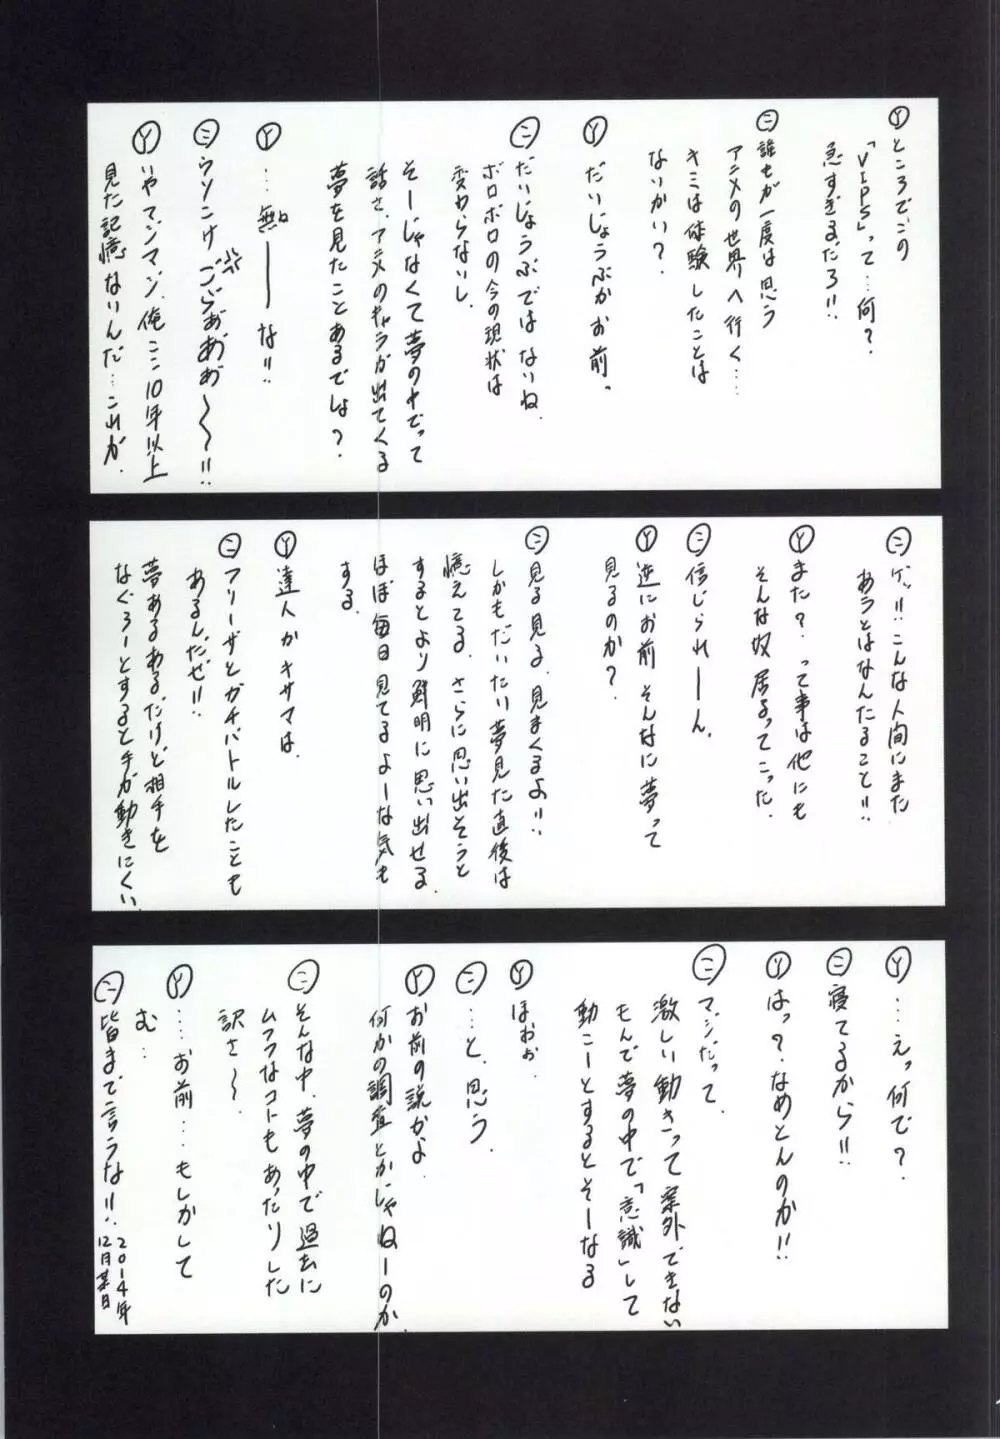 Ⓨところでこの
「VIPS」って…何?
急すぎるだろ!!
㊁誰もが一度は思う
アニメの世界へ行く……
キミは体験したことは
ないかい?
Ⓨだいじょうぶかお前っ
㊁だいじょうぶではないね.
ボロボロの今の現状は
変わらないし.
そーじゃなくて夢の中でって
話さ.アニメのキャラが出てくる
夢を見たことあるでしょ?
Ⓨ…無ーーーな!!
㊁ウソこけごらぁあぁあ〜〜!!
Ⓨいやマジマン.俺ここ10年以上
見た記憶ないんだ…これが.
㊁ゲッ!!こんな人間にまた
あうとはなんたること!!
Ⓨまた?.って事は他にも
そんな奴居るってこった.
㊁信じられーーん.
Ⓨ逆にお前そんなに夢って
見るのか?
㊁見る見る.見まくるよ!!
しかもだいたい夢見た直後は
憶えてる.さらに思い出そうと
するとより鮮明に思い出せる.
ほぼ毎日見てるよーな気も
する.
Ⓨ達人かキサマは.
㊁フリーザとガチバトルしたことも
あるんだぜ!!
夢あるある.だけど相手を
なぐろーとすると手が動きにくい.
Ⓨ…えっ何で?
㊁寝てるから!!
Ⓨはっ?.なめとんのか!!
㊁マジだって.
激しい動きって案外できない
もんで夢の中で「意識」して
動こーとするとそーなる
Ⓨほぉぉ.
㊁…と.思う.
Ⓨお前の説かよ.
何かの調査とかじゃねーのか.
㊁そんな中.夢の中で過去に
ムフフなコトもあったりした
訳さ〜
Ⓨ……お前…もしかして
む…
㊁皆まで言うな!!.
2014年
12月某日